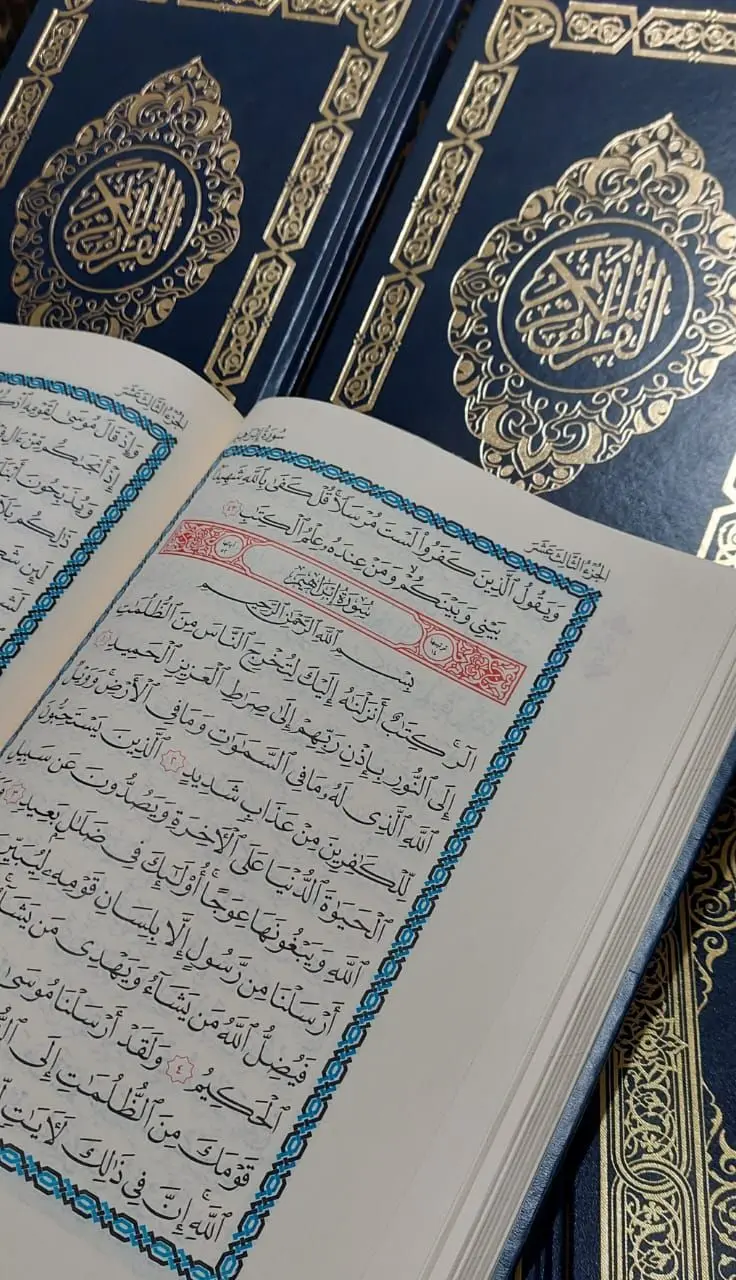 القرآن الكريم
القرآن الكريم
الجزء الثالث عشر
وَإِذْ قَالَ مُوسَىٰ لِقَوْمِهِ
إِذْ أَنجَىٰكُم مِّنْ ءَالِ
وَيُذَبِّحُونَ
ذَٰلِكُم
لَئِن
سورة إبراهيم
الجزء الثالث عشر
وَيَقُولُ ٱلَّذِينَ كَفَرُوا۟ لَسْتَ مُرْسَلًا ۚ قُلْ كَفَىٰ بِٱللَّهِ شَهِيدًۢا
بَيْنِى وَبَيْنَكُمْ وَمَنْ عِندَهُۥ عِلْمُ ٱلْكِتَٰبِ ٤٣
سُورَةُ إِبْرَاهِيمَ
بِسْمِ ٱللَّهِ ٱلرَّحْمَٰنِ ٱلرَّحِيمِ
الٓر ۚ كِتَٰبٌ أَنزَلْنَٰهُ إِلَيْكَ لِتُخْرِجَ ٱلنَّاسَ مِنَ ٱلظُّلُمَٰتِ
إِلَى ٱلنُّورِ بِإِذْنِ رَبِّهِمْ إِلَىٰ صِرَٰطِ ٱلْعَزِيزِ ٱلْحَمِيدِ ١
ٱللَّهِ ٱلَّذِى لَهُۥ مَا فِى ٱلسَّمَٰوَٰتِ وَمَا فِى ٱلْأَرْضِ ۗ وَوَيْلٌ
لِّلْكَٰفِرِينَ مِنْ عَذَابٍ شَدِيدٍ ٢ ٱلَّذِينَ يَسْتَحِبُّونَ
ٱلْحَيَوٰةَ ٱلدُّنْيَا عَلَى ٱلْـَٔاخِرَةِ وَيَصُدُّونَ عَن سَبِيلِ
ٱللَّهِ وَيَبْغُونَهَا عِوَجًا ۚ أُو۟لَٰٓئِكَ فِى ضَلَٰلٍۭ بَعِيدٍ ٣
أَرْسَلْنَا مِن رَّسُولٍ إِلَّا بِلِسَانِ قَوْمِهِۦ لِيُبَيِّنَ
فَيُضِلُّ ٱللَّهُ مَن يَشَآءُ وَيَهْدِى مَن يَشَآءُ
ٱلْحَكِيمُ ٤ وَلَقَدْ أَرْسَلْنَا مُوسَىٰ
قَوْمَكَ مِنَ ٱلظُّلُمَٰتِ إِلَى
ٱللَّهِ ۚ إِنَّ فِى ذَٰلِكَ لَـَٔايَٰتٍ